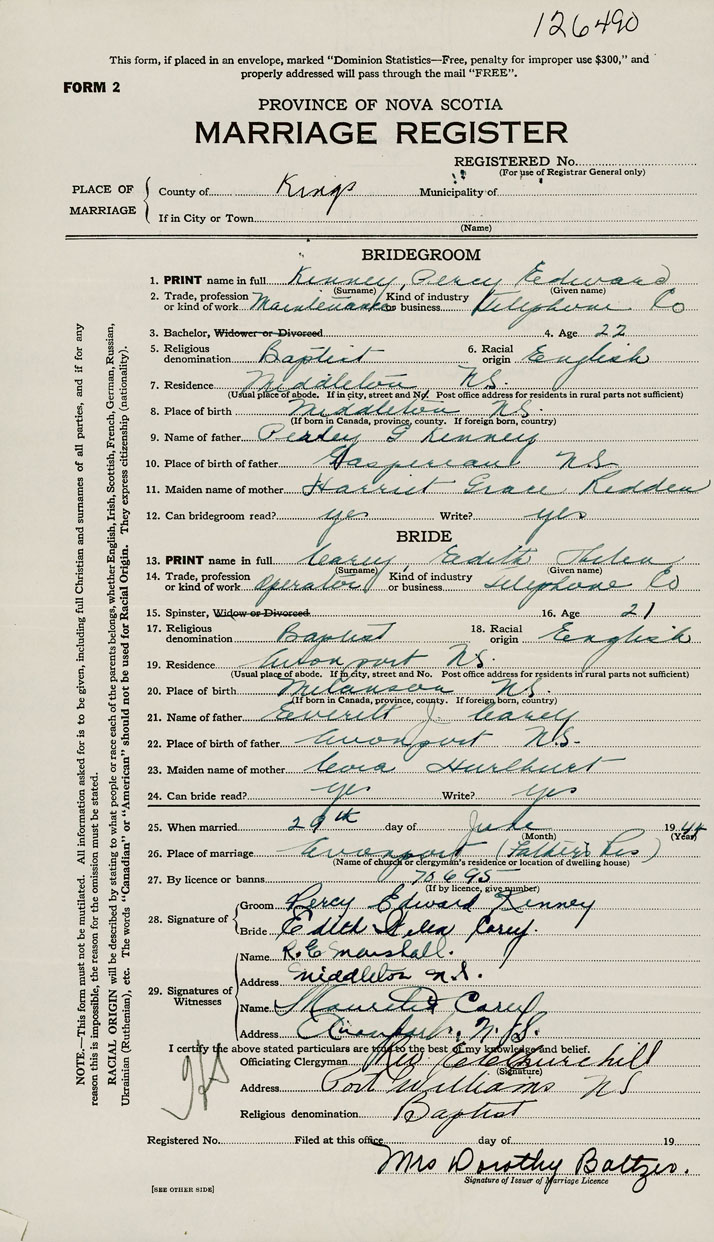 126490
This form, if placed in an envelope, marked "Dominion Statistics—Free, penalty for improper use $300," and
properly addressed will pass through the mail "FREE".
FORM 2
PROVINCE OF NOVA SCOTIA
MARRIAGE REGISTER
REGISTERED No.
(For use of Registrar General only)
PLACE OF MARRIAGE
County of Kings Municipality of
If in City or Town
(Name)
BRIDEGROOM
1. PRINT name in full Kinney, Percy Edward
(Surname) (Given name)
2. Trade, profession or kind of work Maintenance Kind of industry or business Telephone Co
3. Bachelor, Widower or Divorced 4. Age 22
5. Religious denomination Baptist 6. Racial origin English
7. Residence Middleton NS.
(Usual place of abode. If in city, street and No. Post office address for residents in rural parts not sufficient)
8. Place of birth Middleton NS.
(If born in Canada, province, county. If foreign born, country)
9. Name of father G Kinney
10. Place of birth of father Gaspereau N.S.
11. Maiden name of mother Harriet Grace Redden
12. Can bridegroom read? yes Write? yes
BRIDE
13. PRINT name in full Corey, Edith Helen
(Surname) (Given name)
14. Trade, profession or kind of work Operator Kind of industry or business telephone Co
15. Spinster, Widow or Divorced 16. Age 21
17. Religious denomination Baptist 18. Racial origin English
19. Residence Avonport NS.
(Usual place of abode. If in city, street and No. Post office address for residents in rural parts not sufficient)
20. Place of birth Melanson NS.
(If born in Canada, province, county. If foreign born, country)
21. Name of father Everett J. Corey
22. Place of birth of father Avonport N.S-
23. Maiden name of mother Cora Hurlburt
24. Can bride read? yes Write? yes
25. When married 29th day of June 1944
(Month) (Year)
26. Place of marriage Avonport (Father's Res)
(Name of church or clergyman's residence or location of dwelling house)
27. By licence or banns 70695
(If by licence, give number)
28. Signature of
Groom Percy Edward Kinney
Bride Edith Helen Corey.
29. Signatures of Witnesses
Name R.E Marshall.
Address Middleton N.S.
Name Corey
Address Avonport, N.S.
I certify the above stated particulars are true to the best of my knowledge and belief.
Officiating Clergyman Churchill
(Signature)
Address Port Williams NS
Religious denomination Baptist
Registered No. Filed at this office day of 19
Mrs Dorothy Baltzer.
Signature of Issuer of Marriage Licence
[SEE OTHER SIDE]
NOTE.—This form must not be mutilated. All information asked for is to be given, including full Christian and surnames of all parties, and if for any
reason this is impossible, the reason for the omission must be stated.
RACIAL ORIGIN will be described by stating to what people or race each of the parents belongs, whether English, Irish, Scottish, French, German, Russian,
Ukrainian (Ruthenian), etc. The words "Canadian" or "American" should not be used for Racial Origin. They express citizenship (nationality).